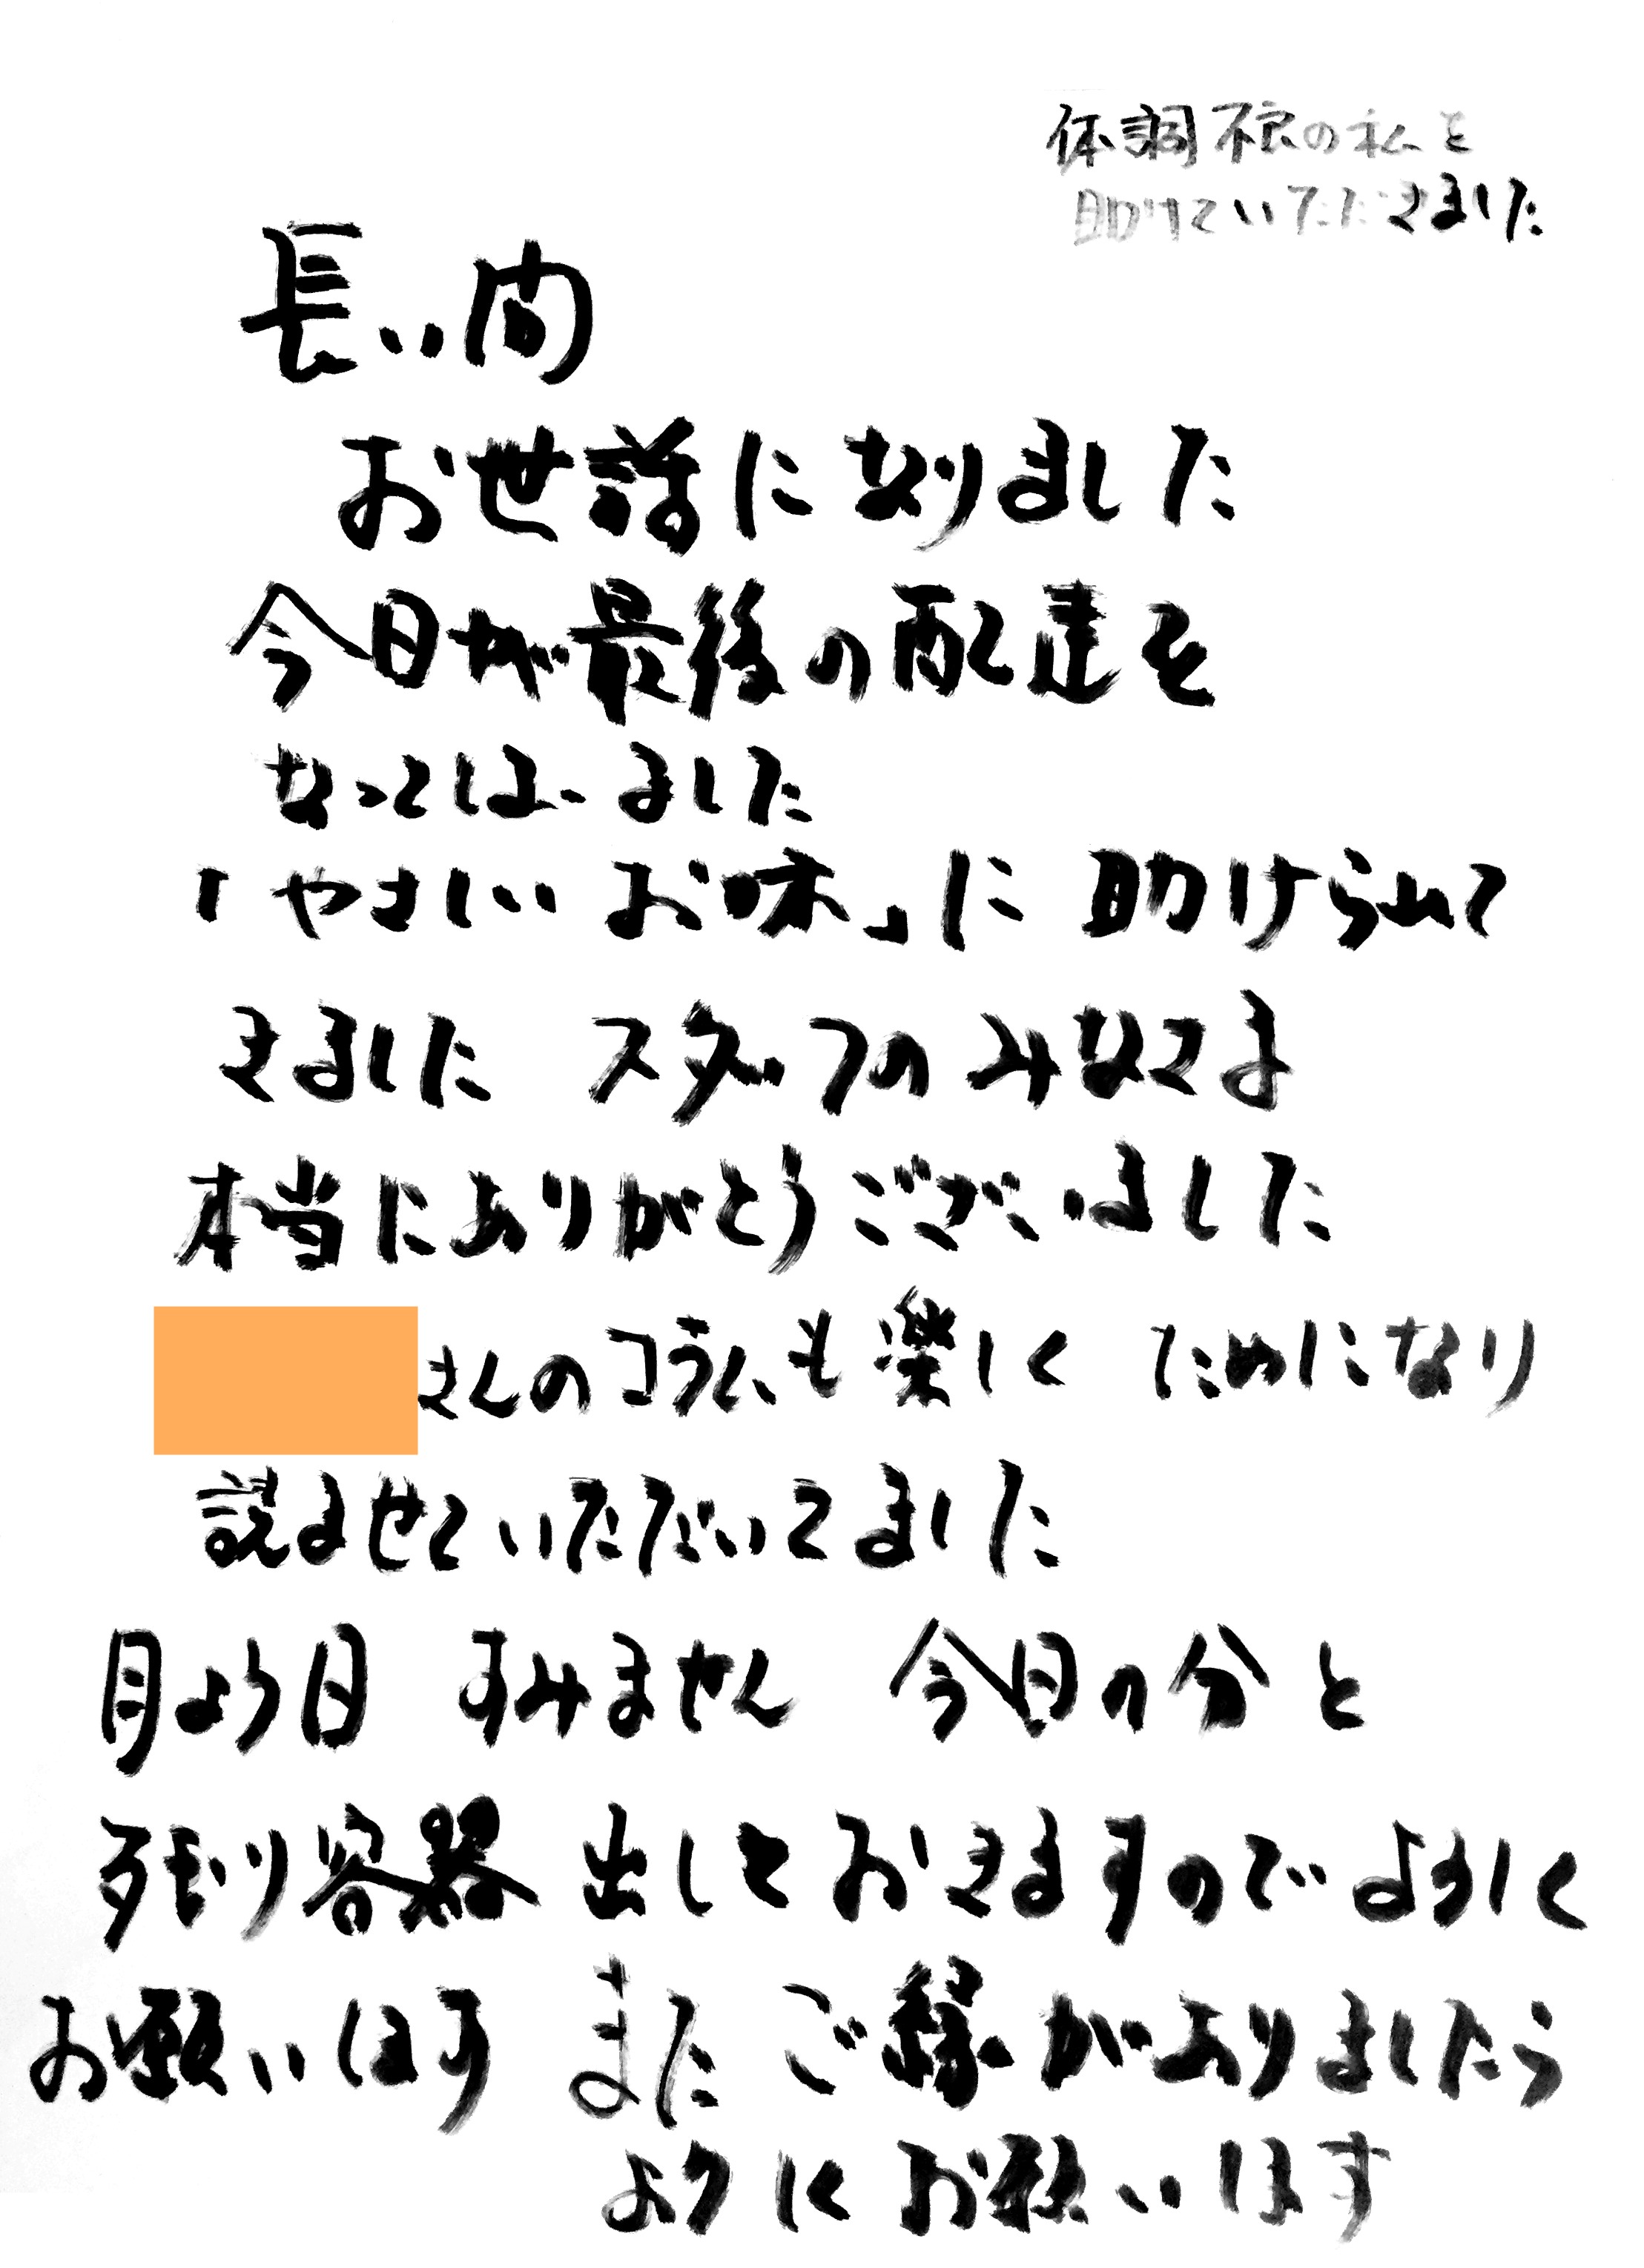 体調不良の私を
助けていただきました
長い間
お世話になりました
今日が最後の配達と
なってしまいました
「やさしいお味」に 助けられて
きました スタッフの みなさま
本当にありがとうございました
さんのコラムも楽しく ためになり
読ませていただいてました
月よう日 すみません 今日の分と
残り容器 出しておきますので よろしく
お願いします また ご縁がありましたら
よろしく お願いします